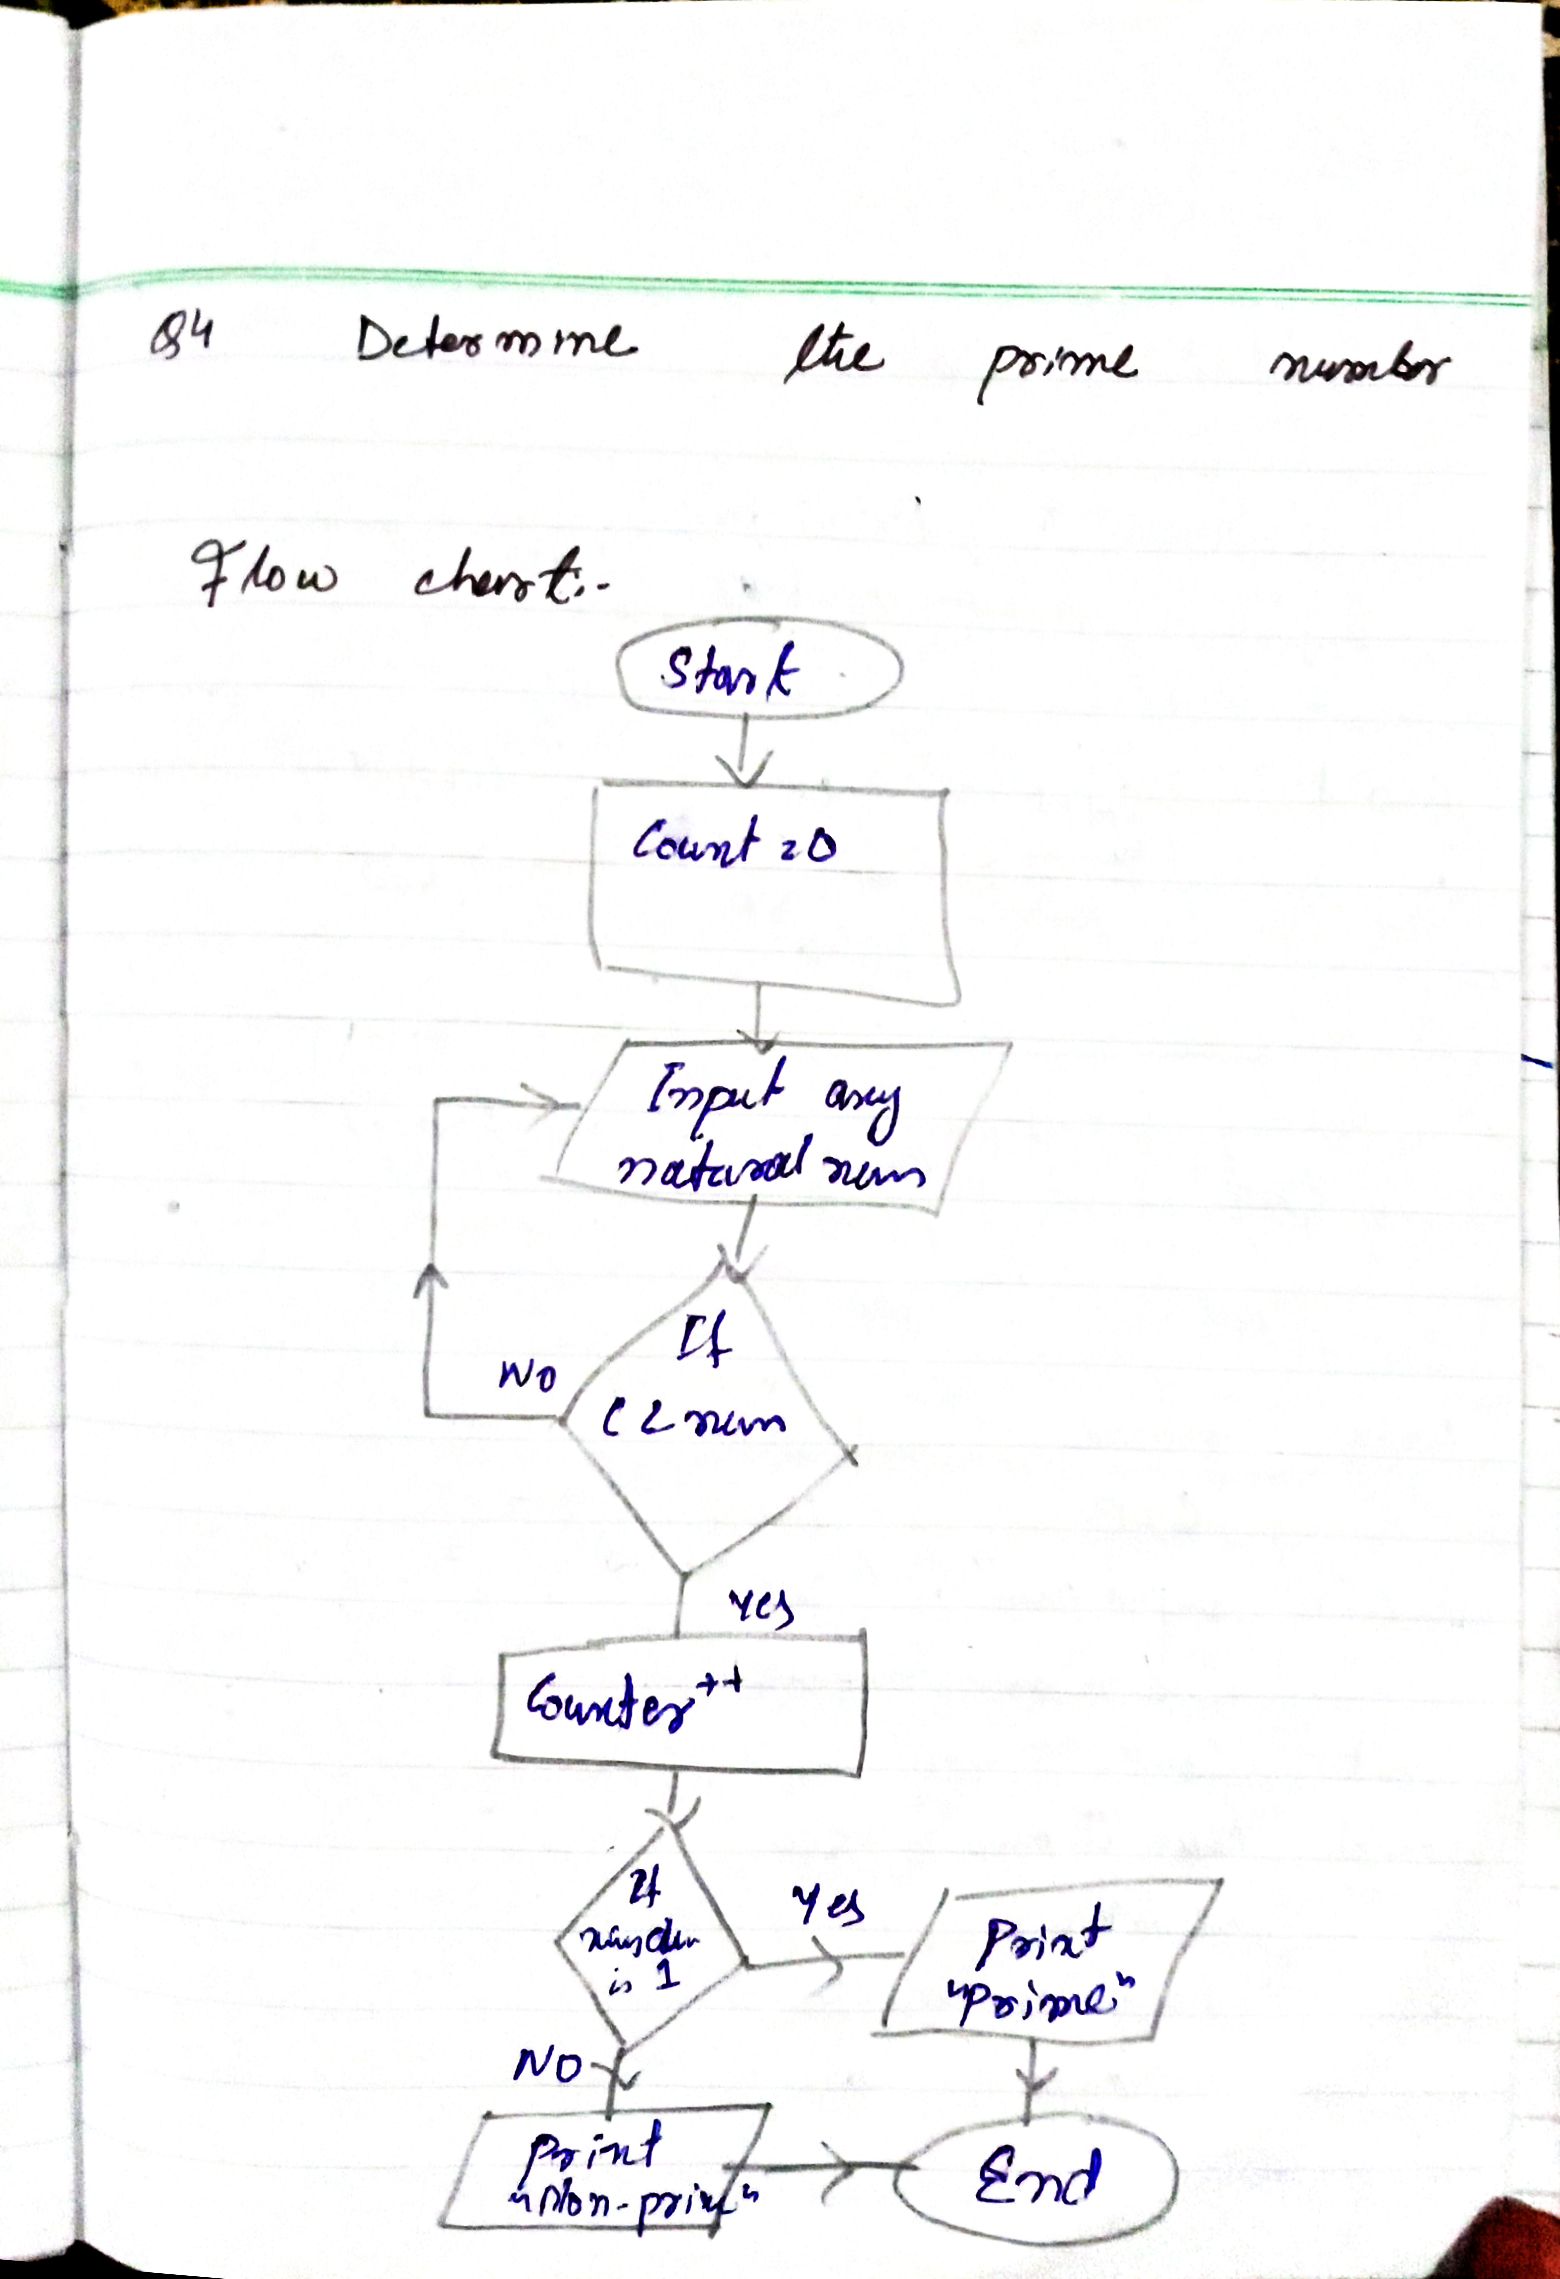 Q4 Determine the prime number
Flow chart:-
Start
Count = 0
Input any
natural num
If
C < num
NO
Yes
Counter++
If
is 1
Yes
Print
"Prime"
NO
Print
"Non-prime"
End